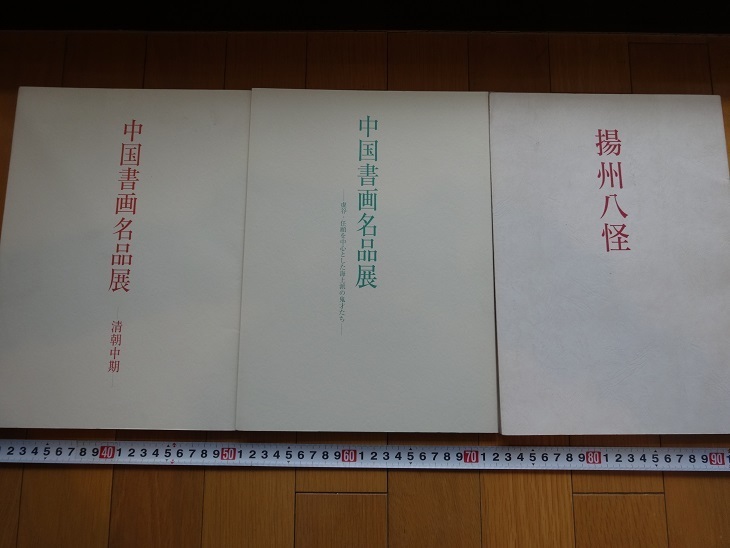 中国書画名品展
清朝中期
中国書画名品展
―虚谷・任頤を中心とした海上派の鬼才たち―
揚州八怪
1 2 3 4 5 6 7 8 9 40 1 2 3 4 5 6 7 8 9 50 1 2 3 4 5 6 7 8 9 60 1 2 3 4 5 6 7 8 9 70 1 2 3 4 5 6 7 8 9 80 1 2 3 4 5 6 7 8 9 90 1